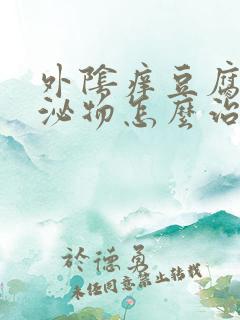 外陰痒豆腐
泌物怎麼治
於德勇
未经同意禁止转载